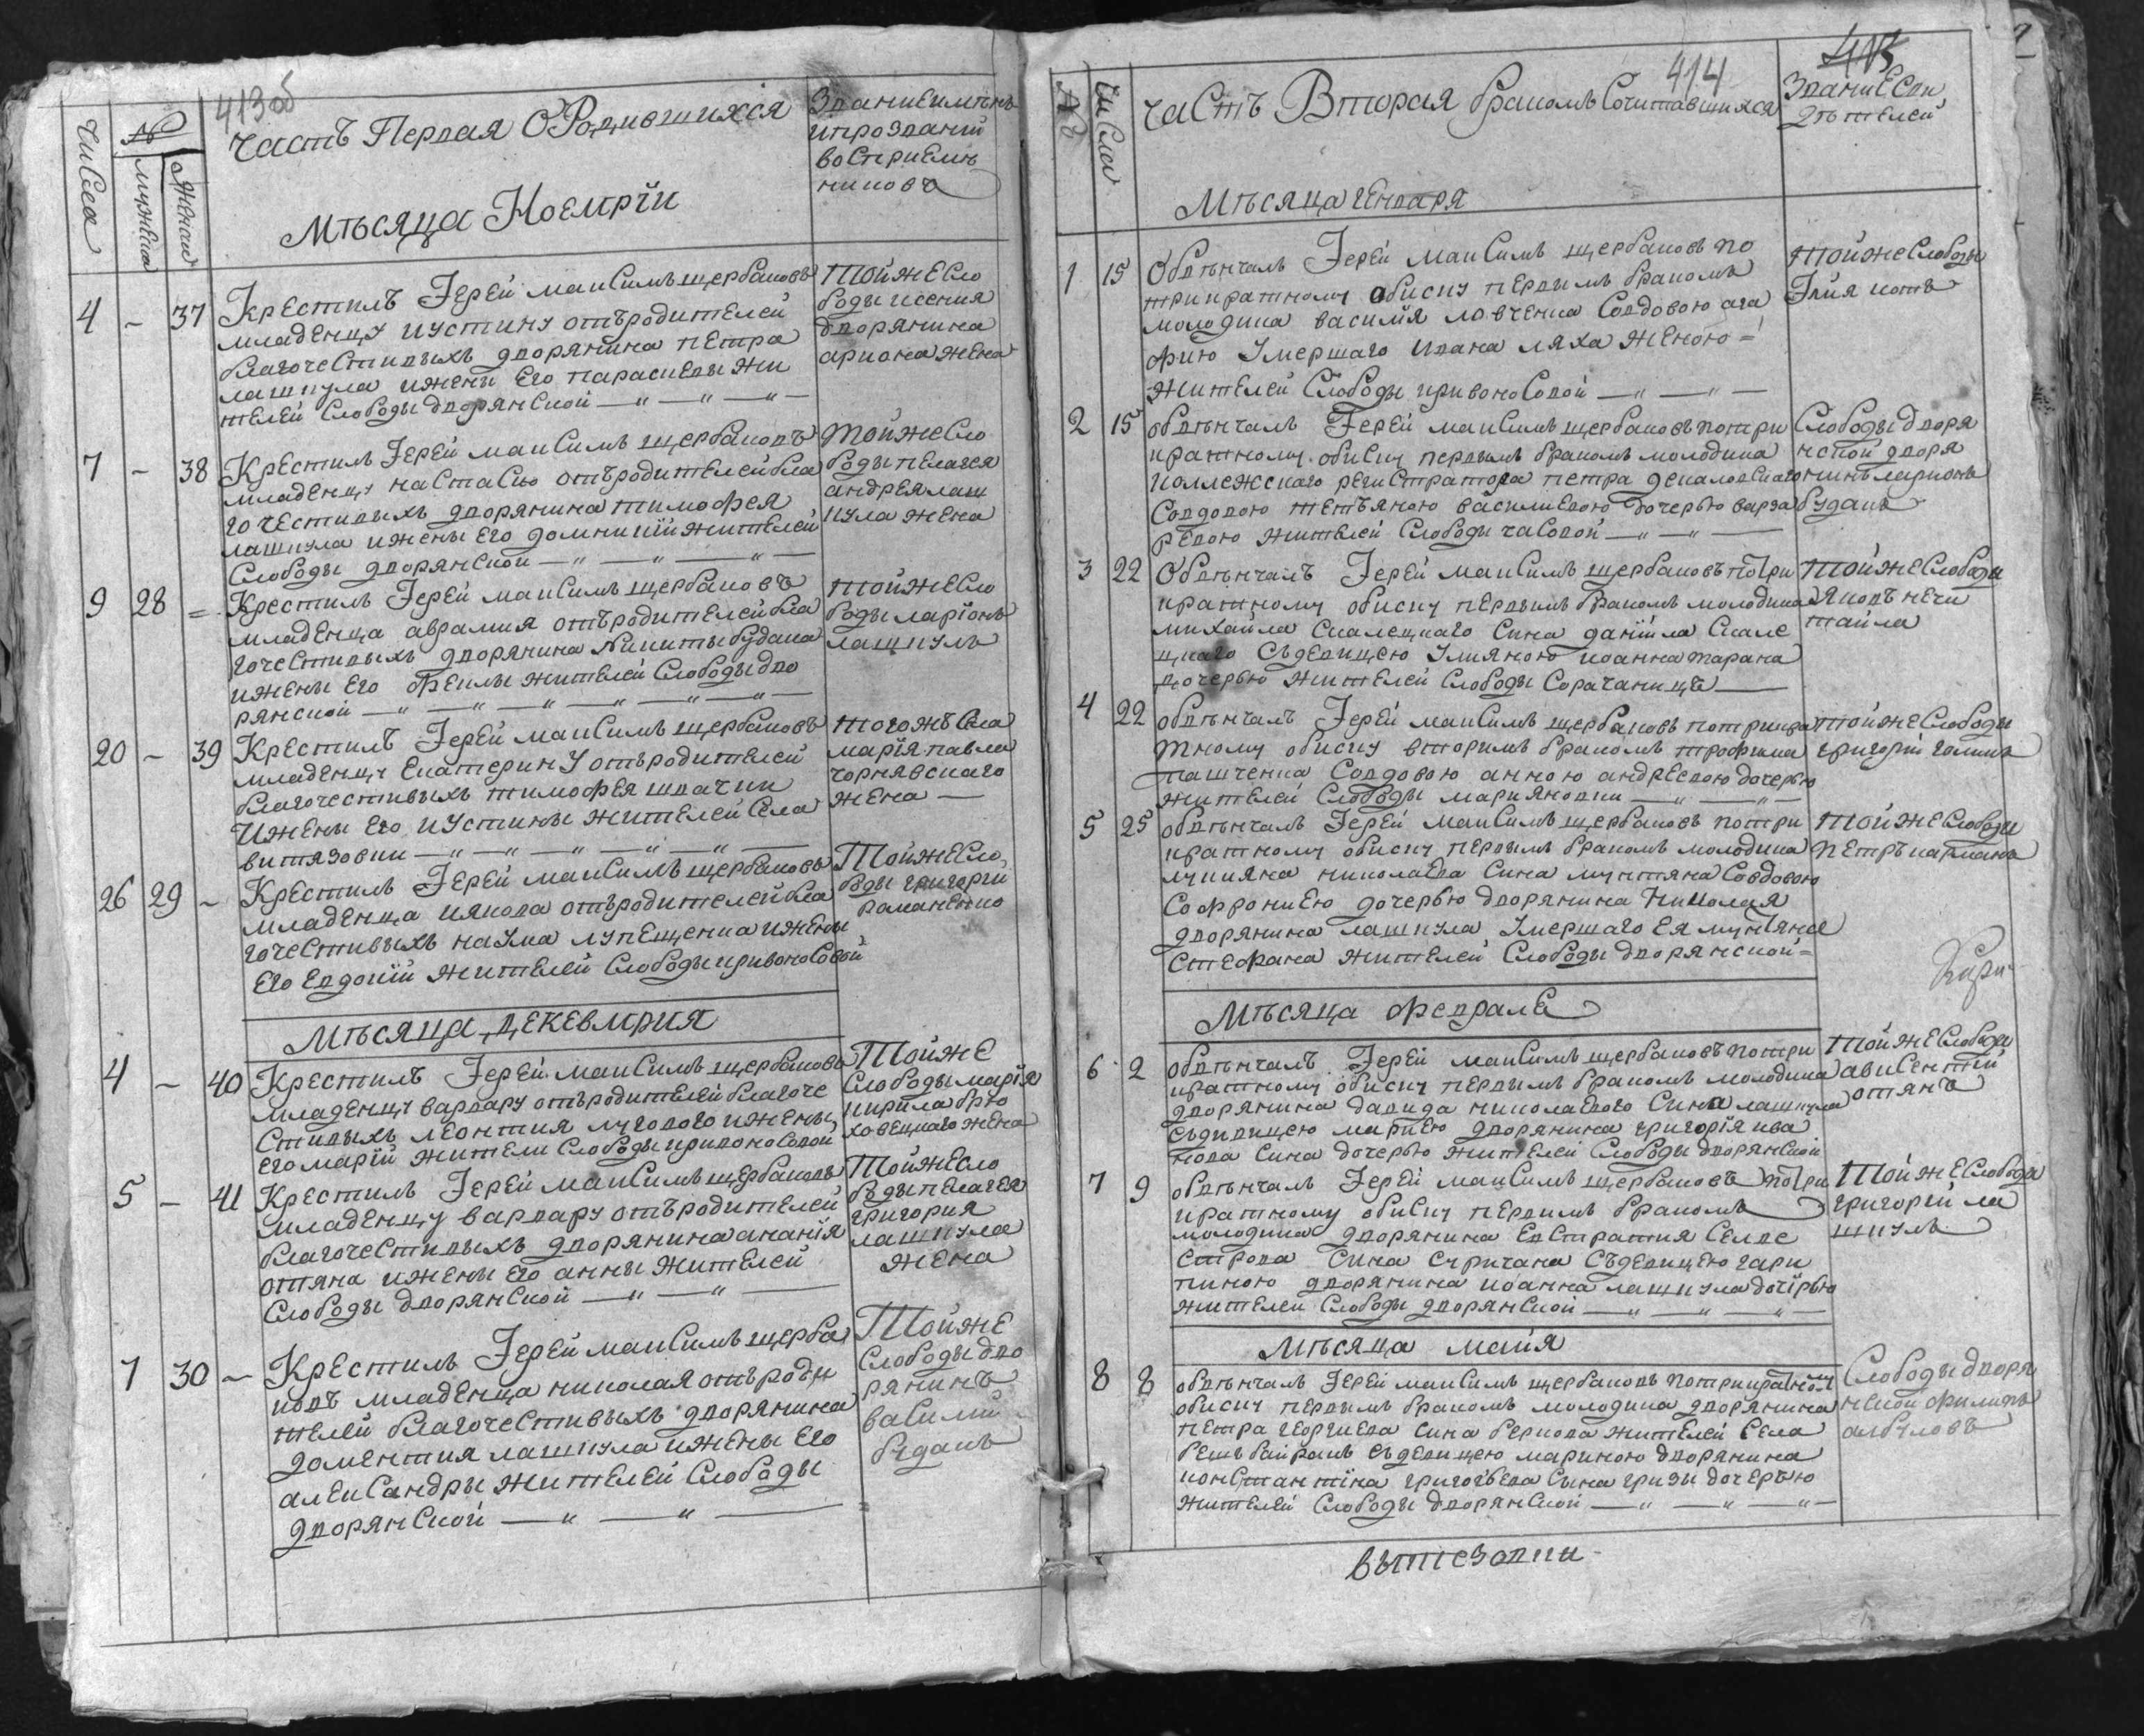 413об
Числа
№
мужеска
женска
Часть Первая О Родившихся
Звание имянъ
и прозваний
восприемъ
никовъ
Мѣсяца Ноемріи
4 – 37 Крестилъ Іерей Максимъ щербаковъ
младенцу иустину отъ родителей
благочестивыхъ дворянина петра
лашкула и жены его параскевы жи
телей Слободы дворянской — " — " — " —
Той же Сло
боды ксения
дворянина
ариона жена
7 – 38 Крестилъ Іерей максимъ щербаковъ
младенцу настасью отъ родителей бла
гочестивыхъ дворянина тимофея
лашкула и жены его домникіи жителей
Слободы дворянской — " — " — " —
Той же Сло
боды пелагея
андрея лаш
кула жена
9 28 = Крестилъ Іерей максимъ щербаковъ
младенца аврамия отъ родителей бла
гочестивыхъ дворянина Никиты будака
и жены его феклы жителей Слободы дво
рянской — " — " — " — " — " — " —
Той же Сло
боды ларіонъ
лашкулъ
20 – 39 Крестилъ Іерей максимъ щербаковъ
младенцу Екатерину отъ родителей
благочестивыхъ тимофея ткачки
и жены его иустины жителей села
витязовки — " — " — " — " — " —
того жъ Села
марія павла
чорнявскаго
жена —
26 29 – Крестилъ Іерей максимъ щербаковъ
младенца иякова отъ родителей бла
гочестивыхъ наума лупещенка и жены
его евдокіи жителей Слободы кривоносовой
Той же Сло
боды григорий
романенко
Мѣсяца декеврия
4 – 40 Крестилъ Іерей максимъ щербаковъ
младенцу варвару отъ родителей благоче
стивыхъ леонтия лугового и жены
его марій жители Слободы кривоносовой
Той же
Слободы марія
кирила брю
ховецкаго жена
5 – 41 Крестилъ Іерей максимъ щербаковъ
младенцу варвару отъ родителей
благочестивыхъ дворянина ананія
отяна и жены его анны жителей
Слободы дворянской — " — " —
Той же Сло
боды пелагея
григория
лашкула
жена
7 30 – Крестилъ Іерей максимъ щерба
ковъ младенца николая отъ роди
телей благочестивыхъ дворянина
доментия лашкула и жены его
александры жителей Слободы
дворянской — " — " —
Той же
Слободы дво
рянинъ
василий
будакъ
414
№
Числа
Часть Вторая бракомъ Сочитавшихся
Звание Сви
дѣтелей
Мѣсяца генваря
1 15 Обвѣнчалъ Іерей максимъ щербаковъ по
трикратному обиску первымъ бракомъ
молодика василія ловченка Совдовою ага
фию умершаго ивана ляха женою =
жителей Слободы кривоносовой — " — " —
Той же Слободы
Ілия котъ
2 15 обвѣнчалъ Іерей максимъ щербаковъ потри
кратному обиску первымъ бракомъ молодика
коллежского регистратора петра декаловскаго
Совдовою тетьяною василиевою дочерью варза
ревою жителей Слободы часовой — " — " —
Слободы дворя
нской дворя
нинъ ларионъ
будакъ
3 22 Обвѣнчалъ Іерей максимъ щербаковъ потри
кратному обиску первымъ бракомъ молодика
михайла скалецкаго Сина даніила Скале
цкаго Съдевицею улияною иоанна тарана
дочерью жителей Слободы Сорачаницѣ —
Той же Слободы
Яковъ нечи
тайла
4 22 обвѣнчалъ Іерей максимъ щербаковъ потрикра
тному обиску вторимъ бракомъ трофима
ташченка Совдовою анною андреевою дочерью
жителей Слободы марияновки — " — " —
Той же Слободы
григорій голикъ
5 25 обвѣнчалъ Іерей максимъ щербаковъ потри
кратному обиску первымъ бракомъ молодика
лукияна николаева Сина мунтяна Совдовою
Софрониею дочерью дворянина Николая
дворянина лашкула умершаго ея мунтяна
Стефана жителей Слободы дворянской =
Той же Слободы
Петръ карманъ
Мѣсяца февраля
6 2 обвѣнчалъ Іерей максимъ щербаковъ потри
кратному обиску первымъ бракомъ молодика
дворянина давида николаевого Сина лашкула
Съдивицею мариею дворянина григорія ива
нова Сина дочерью жителей Слободы дворянской
Той же Слободы
авксентий
отянъ
7 9 обвѣнчалъ Іерей максимъ щербаковъ потри
кратному обиску первымъ бракомъ
молодика дворянина Евстратия Селве
строва Сина Суричана Съдевицею гари
пиною дворянина иоанна лашкула дочірью
жителей Слободы дворянской — " — " — " —
Той же Слободы
григорей ла
шкулъ
Мѣсяца маія
8 8 обвѣнчалъ Іерей максимъ щербаковъ потрикратному
обиску первымъ бракомъ молодика дворянина
петра георгиева Сина бернова жителей Села
бешъ байракъ Съдевицею мариною дворянина
константіна григорьева Сына гризи дочерью
жителей Слободы дворянской — " — " — " —
Слободы дворя
нской филипъ
албуловъ
вытезовки